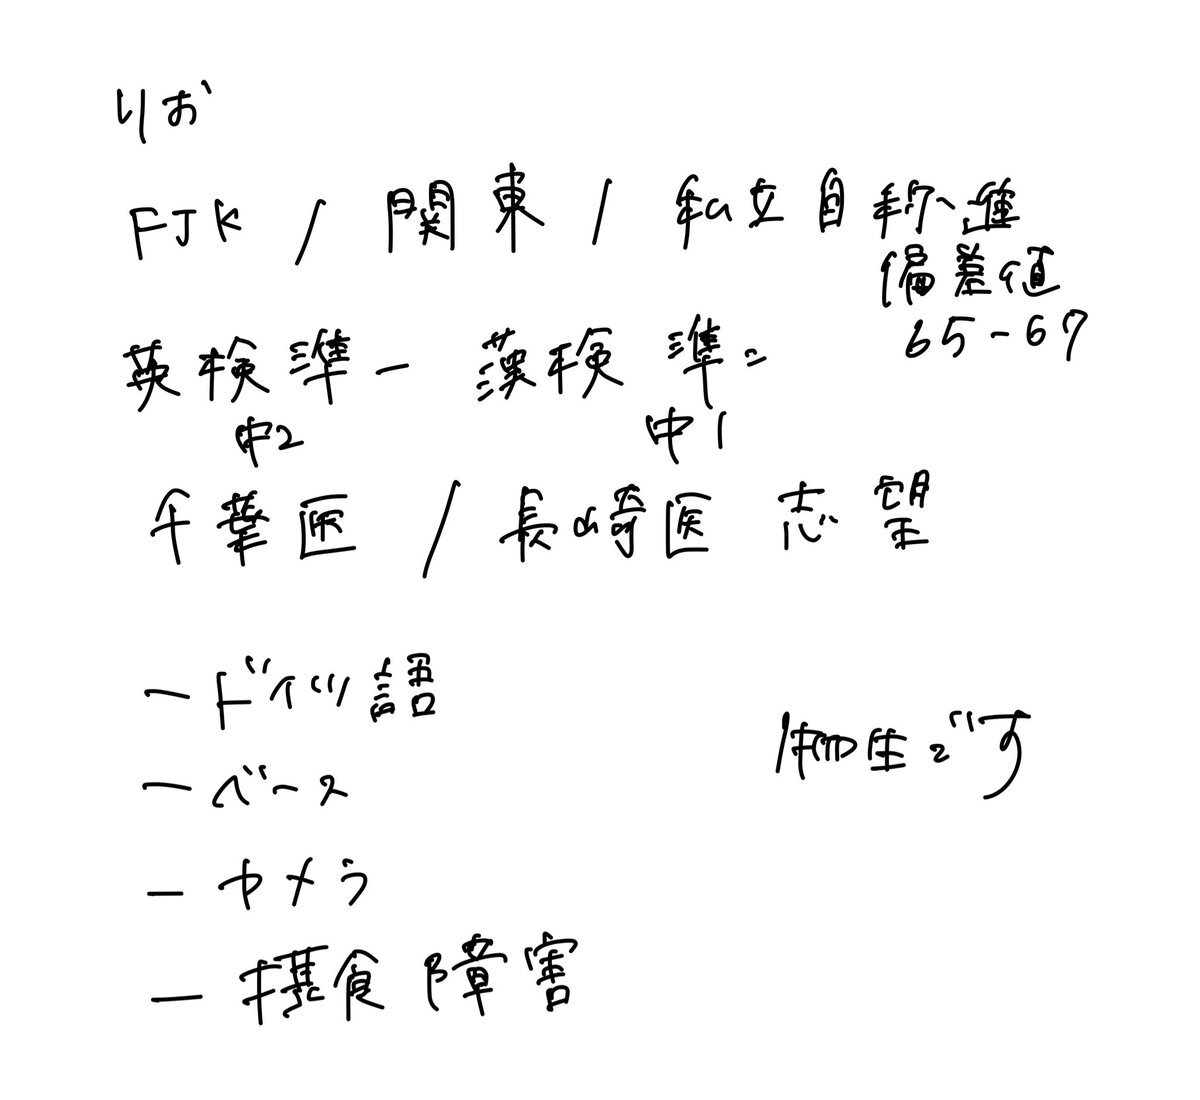 りお
FJK / 関東 / 私立自称進
偏差値
65-67
英検準一 漢検準二
中2 中1
千葉医 / 長崎医 志望
ー ドイツ語
ー ベース
物生です
ー カメラ
ー 摂食障害